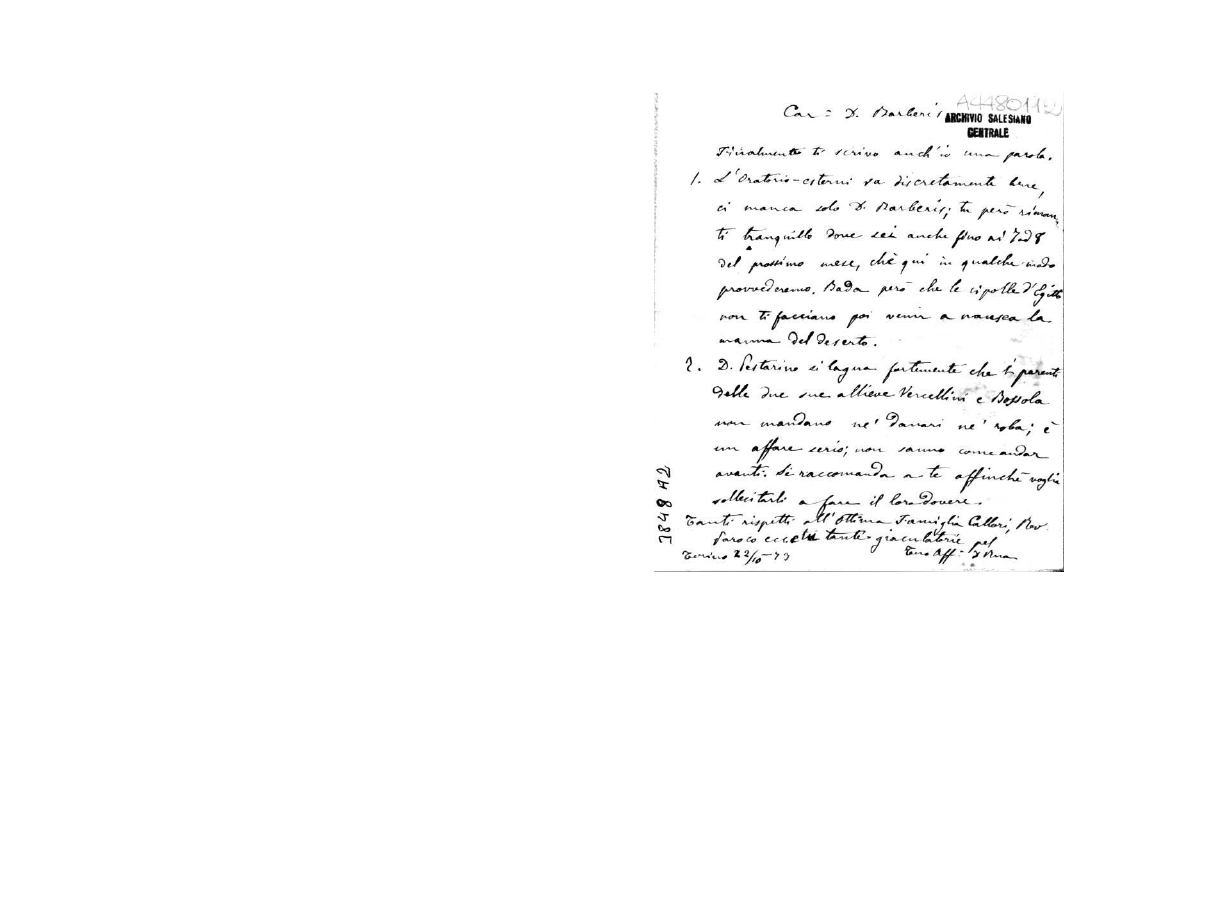 A448011
Car: D. Barberis
ARCHIVIO SALESIANO
CENTRALE
Finalmente ti scrivo anch'io una parola.
1. L'Oratorio-esterni va discretamente bene,
ci manca solo D. Barberis; tu però riman,
ti tranquillo dove sei anche fino ai 7 ad 8
del prossimo mese, chè qui in qualche modo
provvederemo. Bada però che le cipolle d'Egitto
non ti facciano poi venir a nausea la
manna del deserto.
2. D. Pestarino si lagna fortemente che i parenti
delle due sue allieve Vercellini e Bossola
non mandano ne' danari ne' roba; è
un affare serio; non sanno come andar
avanti. Si raccomanda a te affinchè voglia
sollecitarli a fare il loro dovere.
Tanti rispetti all'Ottima Famiglia Callori, Rev.
Paroco ecc. tante giaculatorie pel
Torino 22/10-73 Tuo Aff: D Rua
3848 A2